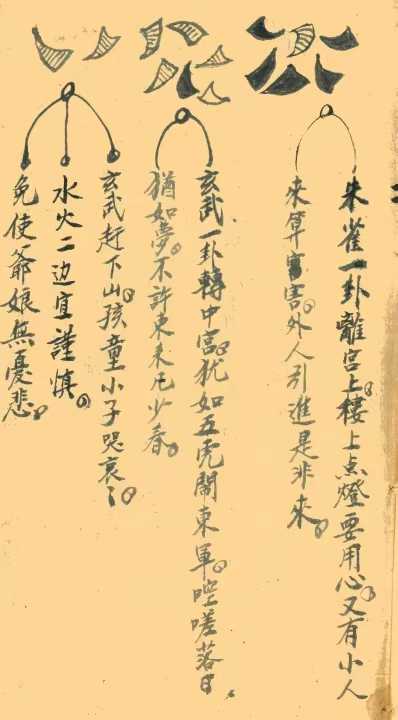 朱雀一卦離宮上。樓上点燈要用心。又有小人
來算害。外人引進是非來。
玄武一卦轉中宮。犹如五虎鬧東軍。嗟落日、
猶如夢。不許東來少春。
玄武赶下山。孩童小子哭哀々。
水火二边宜謹慎。
免使爺娘無憂悲。